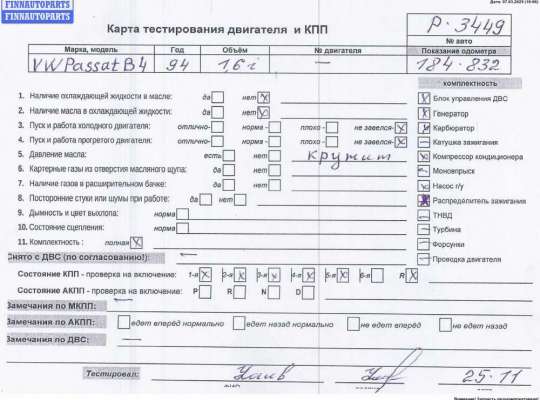 FINNAUTOPARTS
FINNAUTOPARTS
Карта тестирования двигателя и КПП
P-3449
№ авто
Марка, модель Год Объём № двигателя Показание одометра
VW Passat B4 94 1,6 i — 184-832
комплектность
1. Наличие охлаждающей жидкости в масле: да нет x
2. Наличие масла в охлаждающей жидкости: да нет x
3. Пуск и работа холодного двигателя: отлично- норма - плохо - не завелся- x
4. Пуск и работа прогретого двигателя: отлично- норма - плохо - не завелся- x
5. Давление масла: есть нет крутит
6. Картерные газы из отверстия масляного щупа: да нет
7. Наличие газов в расширительном бачке: да нет
8. Посторонние стуки или шумы при работе: да нет
9. Дымность и цвет выхлопа: норма
10. Состояние сцепления: норма
11. Комплектность : полная x
Блок управления ДВС
Генератор
Карбюратор
Катушка зажигания
Компрессор кондиционера
Моновпрыск
Насос г/у
Распределитель зажигания
ТНВД
Турбина
Форсунки
Проводка двигателя
Снято с ДВС (по согласованию!): —
Состояние КПП - проверка на включение: 1-я x 2-я x 3-я x 4-я x 5-я x 6-я R x
Состояние АКПП - проверка на включение: P R N D
Замечания по МКПП: —
Замечания по АКПП: едет вперёд нормально едет назад нормально не едет вперёд не едет назад
Замечания по ДВС: —
Тестировал: 25-11